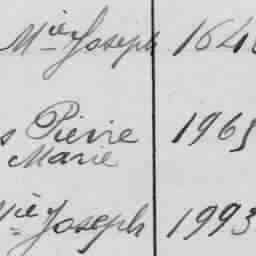 Mie Joseph 164
s Pierre 1965
Marie
Mie Joseph 1993